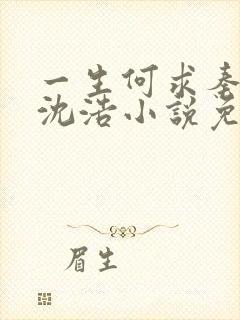 一生何求秦
沈浩小說免
眉生